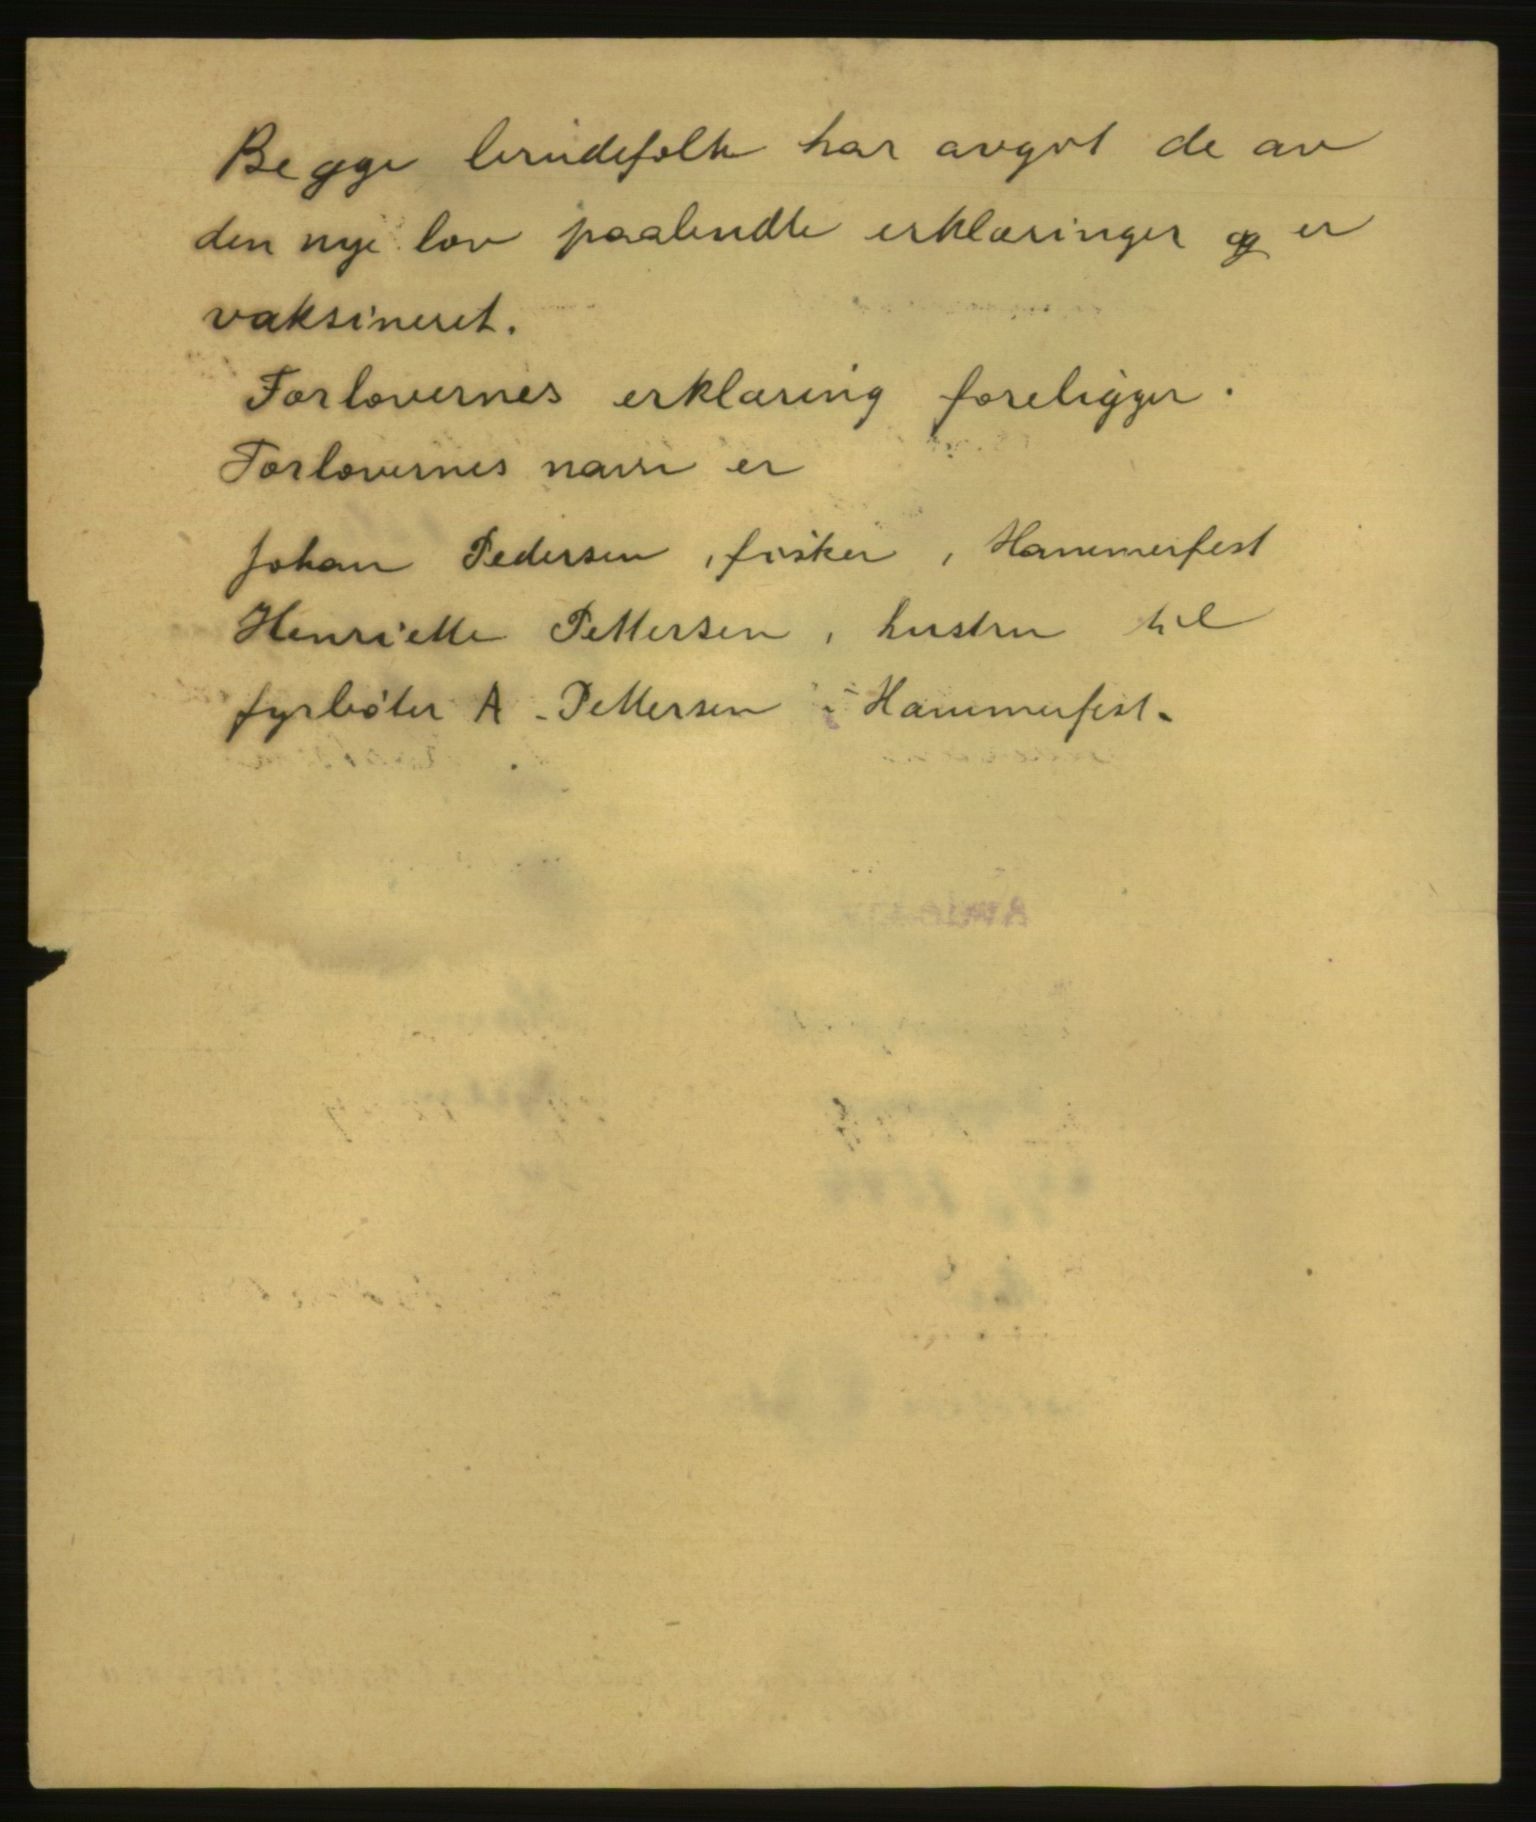 Begge brudefolk har avgit de av
den nye lov paabudte erklæringer og er
vaksineret.
Forlovernes erklæring foreligger.
Forlovernes navn er
Johan Pedersen, fisker, Hammerfest
Henriette Pettersen, hustru til
fyrbøter A. Pettersen i Hammerfest.